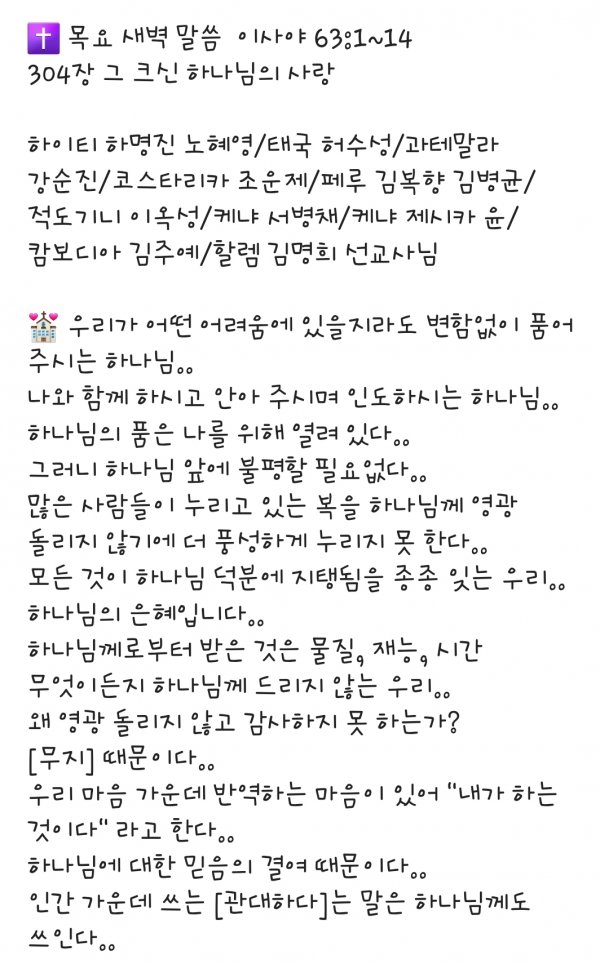 ✝️ 목요 새벽 말씀 이사야 63:1~14
304장 그 크신 하나님의 사랑
하이티 하명진 노혜영/태국 허수성/과테말라
강순진/코스타리카 조운제/페루 김복향 김병균/
적도기니 이옥성/케냐 서병채/케냐 제시카 윤/
캄보디아 김주예/할렘 김명희 선교사님
💒 우리가 어떤 어려움에 있을지라도 변함없이 품어
주시는 하나님..
나와 함께 하시고 안아 주시며 인도하시는 하나님..
하나님의 품은 나를 위해 열려 있다..
그러니 하나님 앞에 불평할 필요없다..
많은 사람들이 누리고 있는 복을 하나님께 영광
돌리지 않기에 더 풍성하게 누리지 못 한다..
모든 것이 하나님 덕분에 지탱됨을 종종 잊는 우리..
하나님의 은혜입니다..
하나님께로부터 받은 것은 물질, 재능, 시간
무엇이든지 하나님께 드리지 않는 우리..
왜 영광 돌리지 않고 감사하지 못 하는가?
[무지] 때문이다..
우리 마음 가운데 반역하는 마음이 있어 "내가 하는
것이다" 라고 한다..
하나님에 대한 믿음의 결여 때문이다..
인간 가운데 쓰는 [관대하다]는 말은 하나님께도
쓰인다..